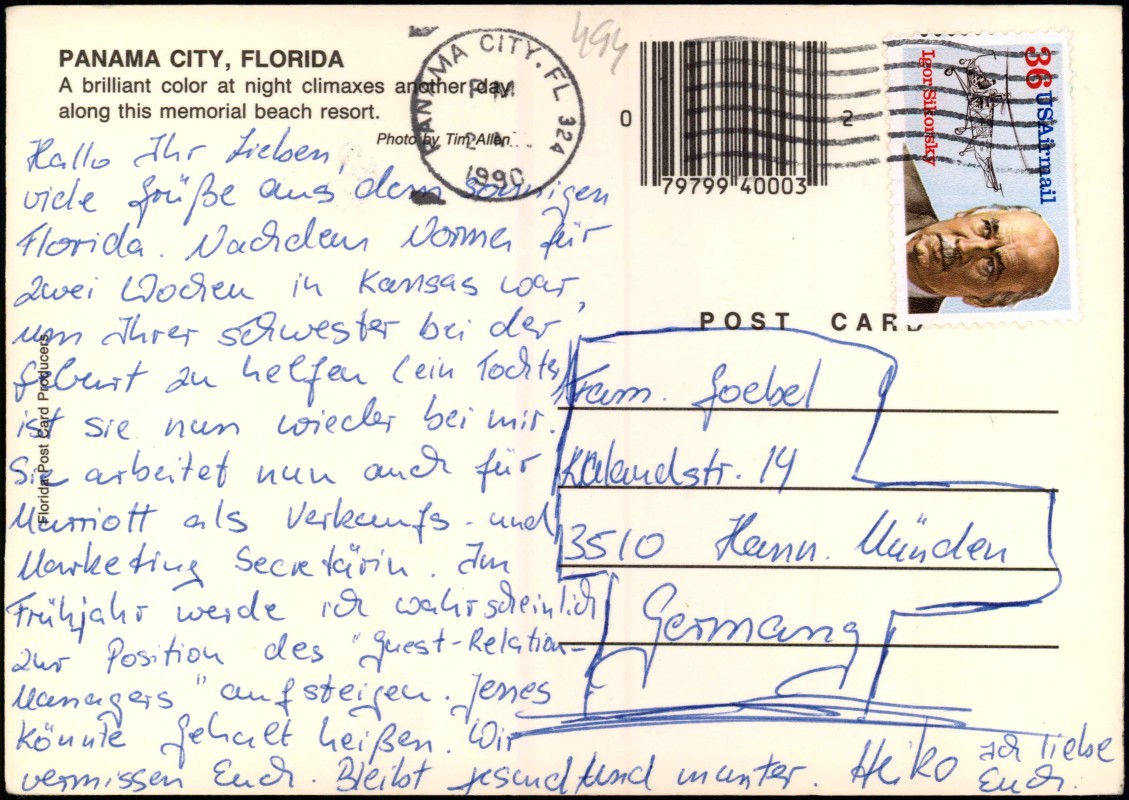 PANAMA CITY, FLORIDA
A brilliant color at night climaxes another day
along this memorial beach resort.
Photo by Tim Allen
PANAMA CITY, FL 324
PM
2
1990
494
0
2
79799 40003
36 USAirmail
Igor Sikorsky
POST CARD
Florida Post Card Producers
Hallo Ihr Lieben,
viele Grüße aus dem sonnigen
Florida. Nachdem Norma für
zwei Wochen in Kansas war,
um Ihrer Schwester bei der
Geburt zu helfen (ein Tochter
ist sie nun wieder bei mir.
Sie arbeitet nun auch für
Marriott als Verkaufs- und
Marketing Secretärin. Im
Frühjahr werde ich wahrscheinlich
zur Position des "Guest-Relation-
Managers" aufsteigen. Jenes
könnte Gehalt heißen. Wir
vermissen Euch. Bleibt gesund und munter. Heiko
Ich liebe
Euch.
Fam. Goebel
Kalandstr. 14
3510 Hann. Münden
Germany